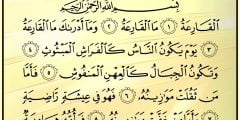 بِسْمِ اللَّهِ الرَّحْمَٰنِ الرَّحِيمِ
الْقَارِعَةُ ١ مَا الْقَارِعَةُ ٢ وَمَا أَدْرَاكَ مَا الْقَارِعَةُ
٣ يَوْمَ يَكُونُ النَّاسُ كَالْفَرَاشِ الْمَبْثُوثِ ٤
وَتَكُونُ الْجِبَالُ كَالْعِهْنِ الْمَنْفُوشِ ٥ فَأَمَّا
مَن ثَقُلَتْ مَوَازِينُهُ ٦ فَهُوَ فِي عِيشَةٍ رَّاضِيَةٍ